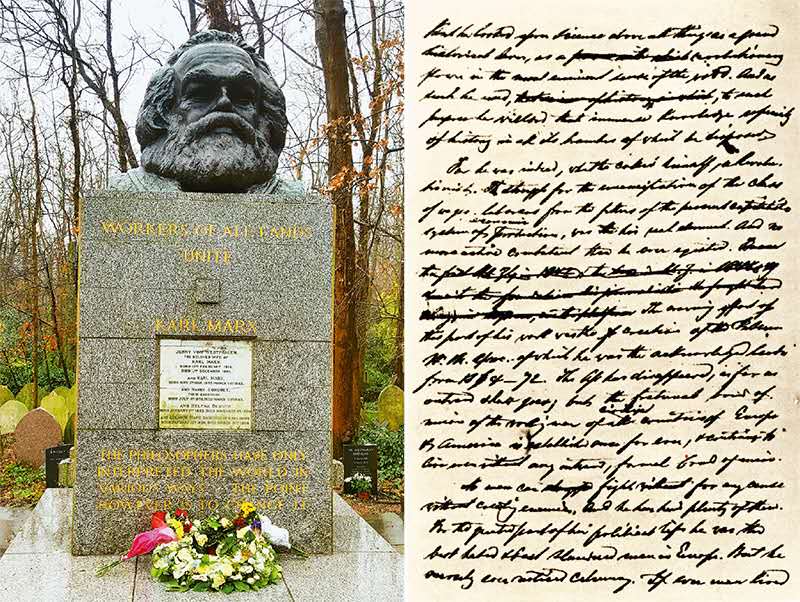 WORKERS OF ALL LANDS
UNITE
KARL MARX
JENNY VON WESTPHALEN,
THE BELOVED WIFE OF
KARL MARX.
BORN 12TH FEBRUARY 1814,
DIED 2ND DECEMBER 1881.
AND KARL MARX,
BORN MAY 5TH 1818, DIED MARCH 14TH 1883.
AND HARRY LONGUET,
THEIR GRANDSON,
BORN JULY
AND HELENA DEMUTH,
THE PHILOSOPHERS HAVE ONLY
INTERPRETED THE WORLD IN
VARIOUS WAYS · THE POINT
HOWEVER IS TO CHANGE IT
he looked upon science above all things as a grand
historical lever, as a revolutionary
power in the most eminent sense of the word. And as
such he used, to such
purpose he wielded that immense knowledge, especially
of history in all its branches of which he disposed
For he was indeed, what he called himself, a Revolu-
tionist. The struggle for the emancipation of the class
of wages-labourers from the fetters of the present capitalist
system of economic production, was his real element. And no
more active combatant than he ever existed.
the crowning effort of
this part of his work was the creation of the
W. M. Assn. of which he was the acknowledged leader
from 1864–72. The has disappeared, as far as
outward show goes; but the fraternal bond of
union of the working men of all civilized countries of Europe
& America is established once for ever, & continues to
live even without any outward, formal bond of union.
No man can fight for any cause
without creating enemies. And he has had plenty of them.
For the greater part of his political life he was the
best hated & best slandered man in Europe. But he
scarcely ever noticed calumny. If ever man lived